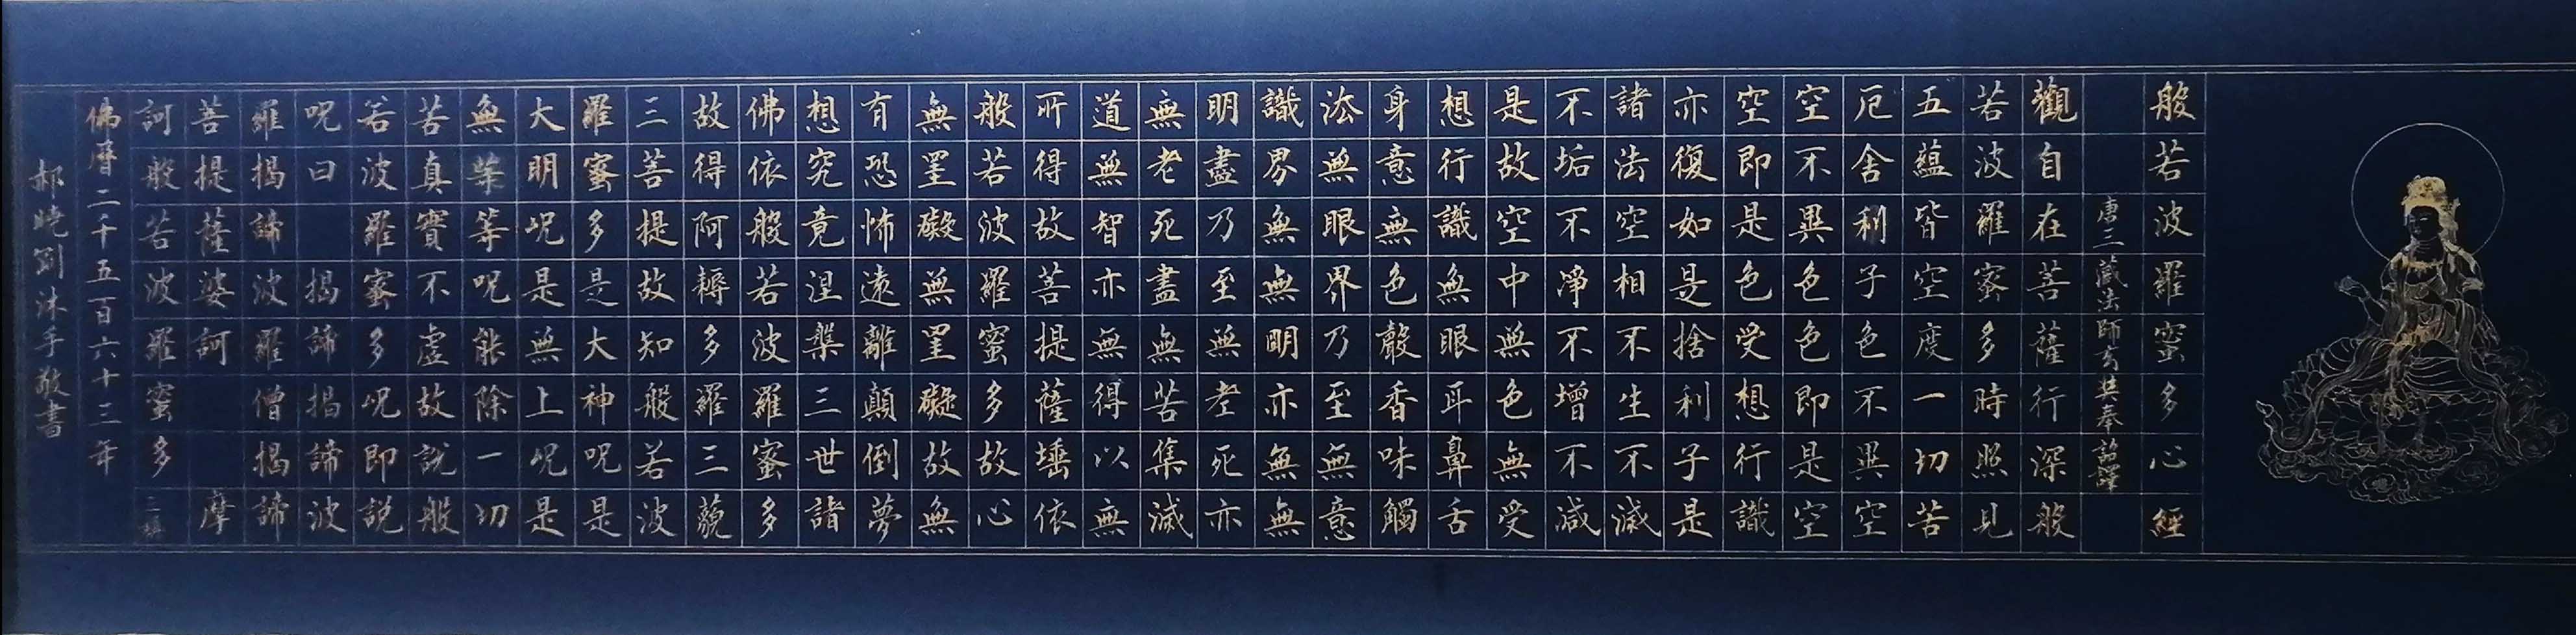 般若波羅蜜多心經
唐三藏法師玄奘奉詔譯
觀自在菩薩行深般
若波羅蜜多時照見
五蘊皆空度一切苦
厄舍利子色不異空
空不異色色即是空
空即是色受想行識
亦復如是捨利子是
諸法空相不生不滅
不垢不淨不增不減
是故空中無色無受
想行識無眼耳鼻舌
身意無色聲香味觸
法無眼界乃至無意
識界無無明亦無無
明盡乃至無老死亦
無老死盡無苦集滅
道無智亦無得以無
所得故菩提薩埵依
般若波羅蜜多故心
無罣礙無罣礙故無
有恐怖遠離顛倒夢
想究竟涅槃三世諸
佛依般若波羅蜜多
故得阿耨多羅三藐
三菩提故知般若波
羅蜜多是大神呪是
大明呪是無上呪是
無等呪能除一切
苦真實不虛故說般
若波羅蜜多呪即說
呪曰 揭諦揭諦波
羅揭諦波羅僧揭諦
菩提薩婆訶 摩
訶般若波羅蜜多 三
佛曆二千五百六十三年
郝曉劉沐手敬書